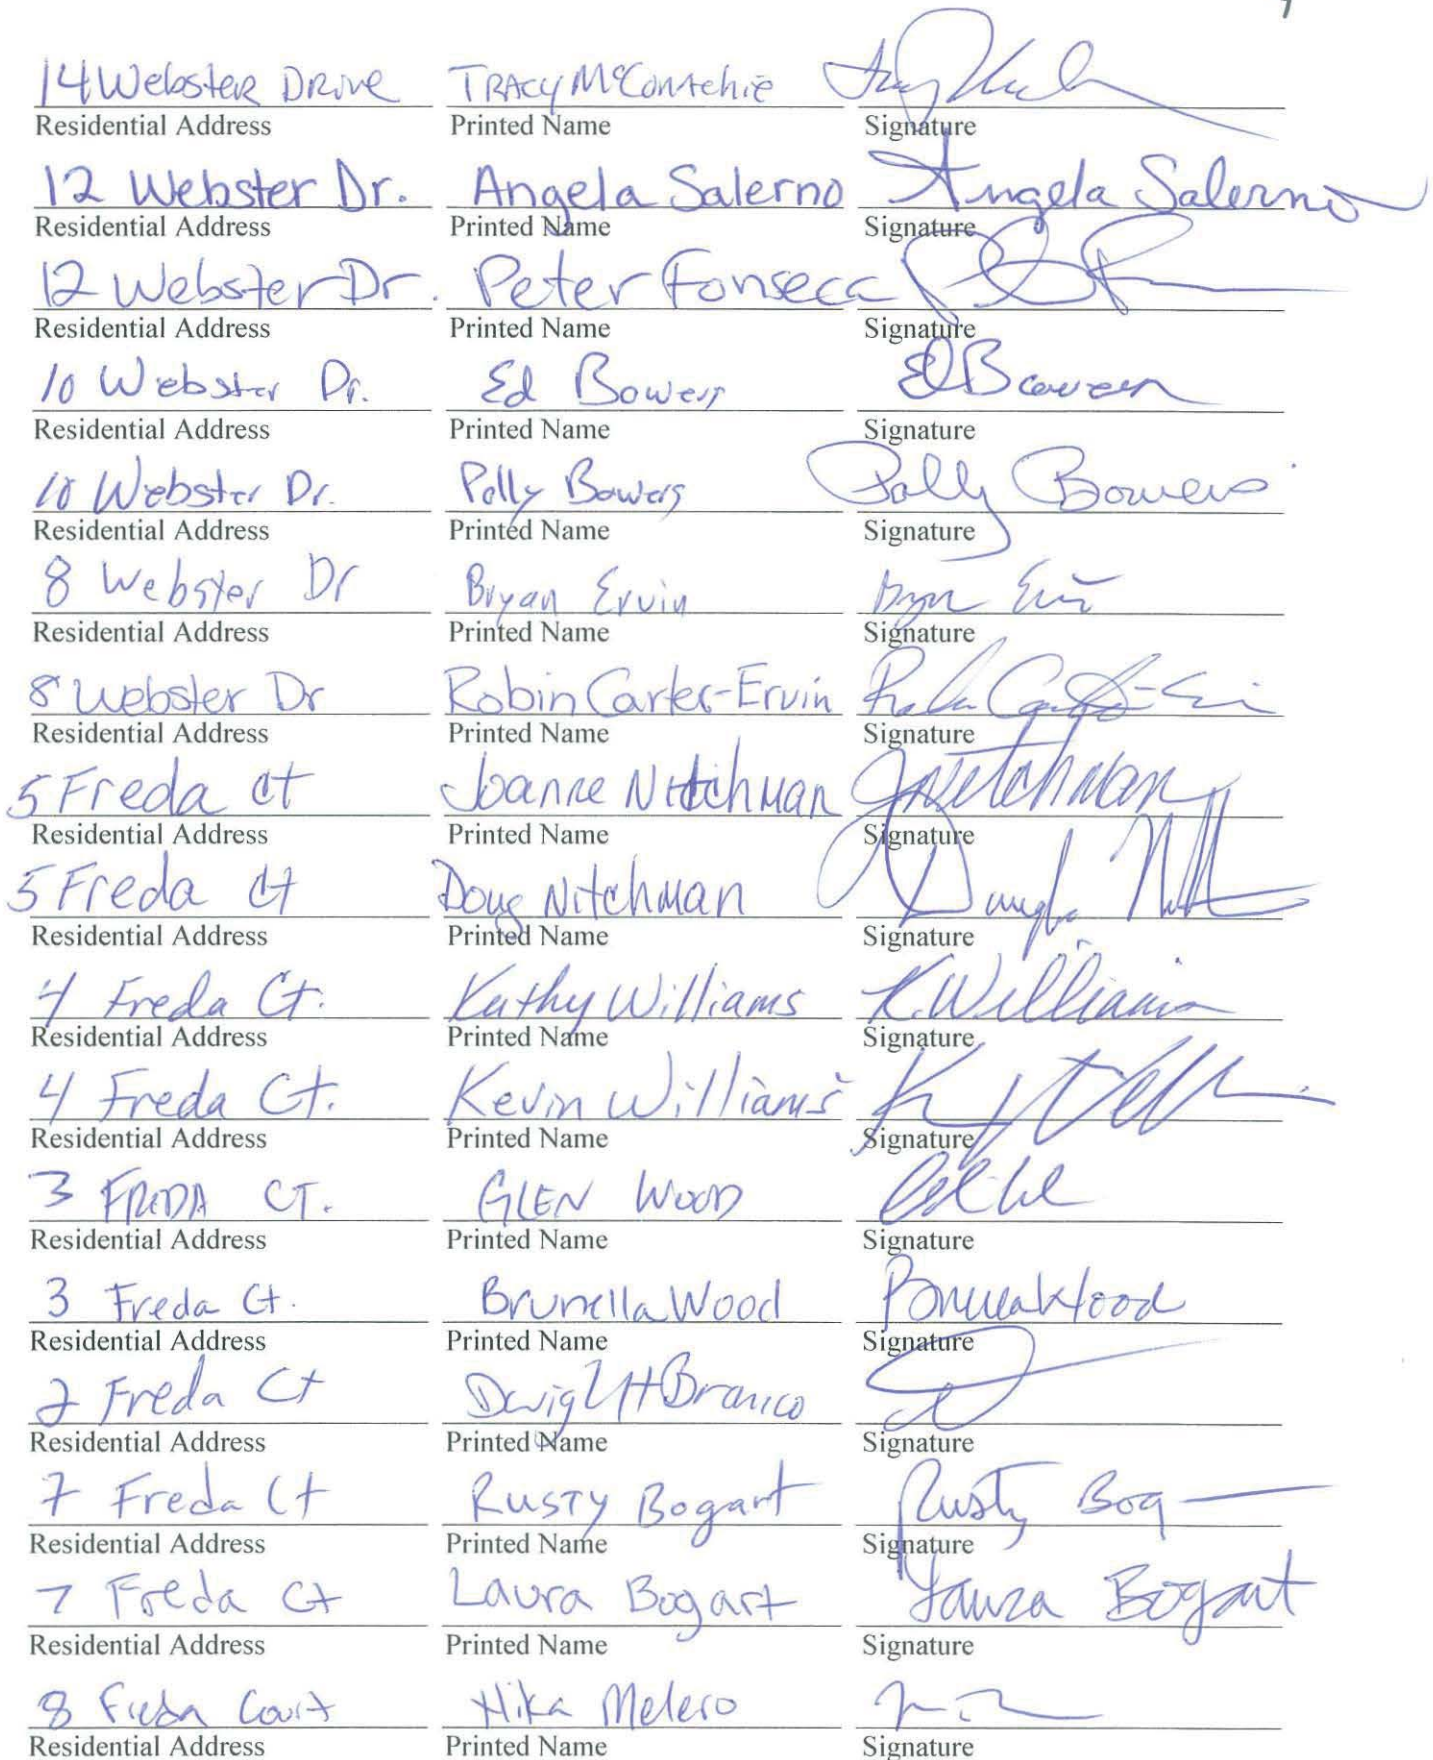 14 Webster Drive TRACY McConnchie
Residential Address Printed Name Signature
12 Webster Dr. Angela Salerno Angela Salerno
Residential Address Printed Name Signature
12 Webster Dr. Peter Fonseca
Residential Address Printed Name Signature
10 Webster Dr. Ed Bowers Ed Bowers
Residential Address Printed Name Signature
10 Webster Dr. Polly Bowers Polly Bowers
Residential Address Printed Name Signature
8 Webster Dr Bryan Ervin
Residential Address Printed Name Signature
8 Webster Dr Robin Carter-Ervin
Residential Address Printed Name Signature
5 Freda Ct Joanne Nitchman JNitchman
Residential Address Printed Name Signature
5 Freda Ct Doug Nitchman
Residential Address Printed Name Signature
4 Freda Ct. Kathy Williams K. Williams
Residential Address Printed Name Signature
4 Freda Ct. Kevin Williams
Residential Address Printed Name Signature
3 FREDA CT. GLEN WOOD
Residential Address Printed Name Signature
3 Freda Ct. Brunella Wood
Residential Address Printed Name Signature
2 Freda Ct Dwight Branco
Residential Address Printed Name Signature
7 Freda Ct Rusty Bogart Rusty Bog
Residential Address Printed Name Signature
7 Freda Ct Laura Bogart Laura Bogart
Residential Address Printed Name Signature
8 Freda Court Melero
Residential Address Printed Name Signature